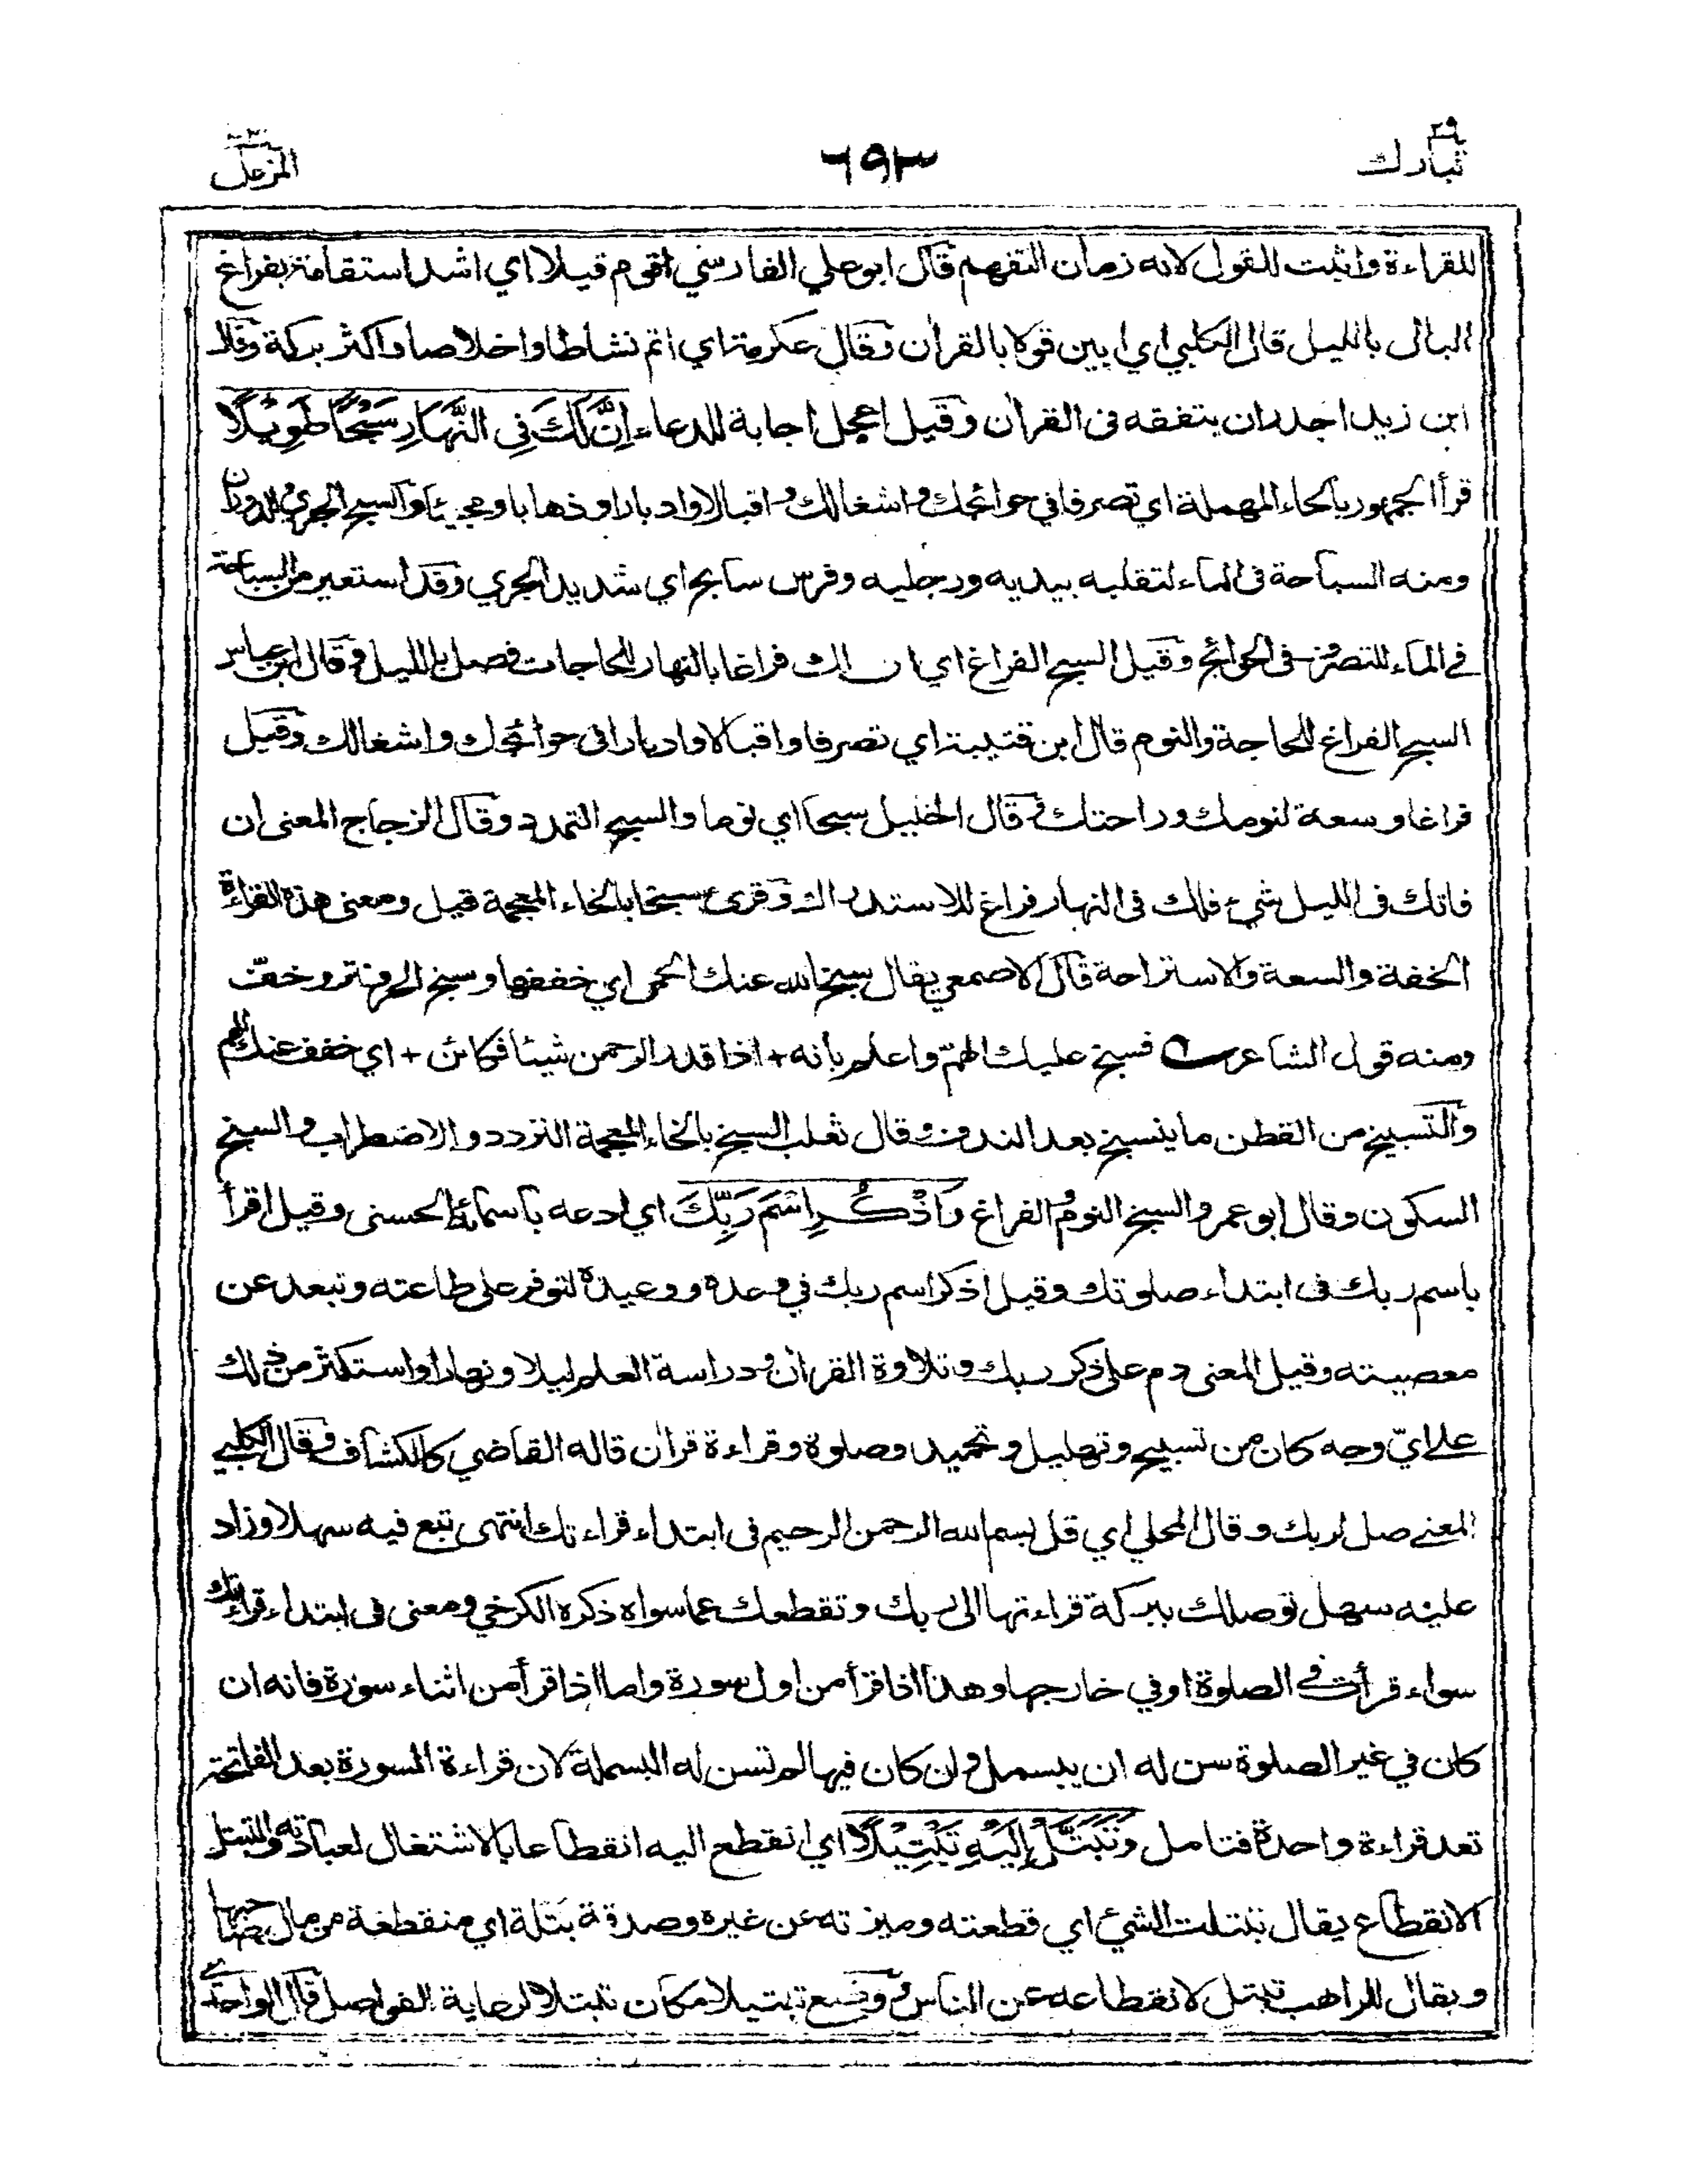 تبارك ٢٩
٦٩٣
المزمل ٧٣
للقراءة واثبت للقول لانه زمان التفهم قال ابو علي الفارسي اقوم قيلا اي اشد استقامة بفراغ
البال بالليل قال الكلبي اي ابين قولا بالقرآن وقال عكرمة اي اتم نشاطا واخلاصا واكثر بركة وقال
ابن زيد اجدر ان يتفقه فى القرآن وقيل اعجل اجابة للدعاء إِنَّ لَكَ فِي النَّهَارِ سَبْحًا طَوِيْلًا
قرأ الجمهور بالحاء المهملة اي تصرفا في حوائجك واشغالك واقبالا وادبارا وذهابا ومجيئا والسبح الجري والدوران
ومنه السباحة فى الماء لتقلبه بيديه ورجليه وفرس سابح اي شديد الجري وقد استعير من السباحة
في الماء للتصرف فى الحوائج وقيل السبح الفراغ اي ان لك فراغا بالنهار للحاجات فصل بالليل وقال ابن عباس
السبح الفراغ للحاجة والنوم قال ابن قتيبة اي تصرفا واقبالا وادبارا فى حوائجك واشغالك وقيل
فراغا وسعة لنومك وراحتك وقال الخليل سبحا اي نوما والسبح التمدد وقال الزجاج المعنى ان
فاتك فى الليل شيء فلك فى النهار فراغ للاستدراك وقرى سبخا بالخاء المعجمة قيل ومعنى هذه القراءة
الخفة والسعة والاستراحة قال الاصمعي يقال سبخ الله عنك الحمى اي خففها وسبخ الحر فتر وخف
ومنه قول الشاعر فسبخ عليك الهمّ واعلم بانه + اذا قدر الرحمن شيئا فكائن + اي خفف عنك الهم
والتسبيخ من القطن ما ينسبخ بعد الندف وقال ثعلب السبخ بالخاء المعجمة التردد والاضطراب والسبخ
السكون وقال ابو عمرو السبخ النوم والفراغ وَاذْكُرِ اسْمَ رَبِّكَ اي ادعه باسمائه الحسنى وقيل اقرأ
باسم ربك فى ابتداء صلوتك وقيل اذكر اسم ربك في وعده ووعيده لتوفر على طاعته وتبعد عن
معصيته وقيل المعنى دم على ذكر ربك وتلاوة القرآن ودراسة العلم ليلا ونهارا واستكثر من ذلك
على ايّ وجه كان من تسبيح وتهليل وتحميد وصلوة وقراءة قرآن قاله القاضي كالكشاف وقال الكلبي
المعنى صل لربك وقال المحلي اي قل بسم الله الرحمن الرحيم فى ابتداء قراءتك انتهى تبع فيه سهلا وزاد
عليه سهل توصلك ببركة قراءتها الى ربك وتقطعك عما سواه ذكره الكرخي ومعنى فى ابتداء قراءتك
سواء قرأت في الصلوة او في خارجها وهذا اذا قرأ من اول سورة واما اذا قرأ من اثناء سورة فانه ان
كان في غير الصلوة سن له ان يبسمل وان كان فيها لم تسن له البسملة لان قراءة السورة بعد الفاتحة
تعد قراءة واحدة فتامل وَتَبَتَّلْ إِلَيْهِ تَبْتِيْلًا اي انقطع اليه انقطاعا بالاشتغال لعبادته والتبتل
الانقطاع يقال بتلت الشيء اي قطعته وميزته عن غيره وصدقة بتلة اي منقطعة من مال صاحبها
ويقال للراهب تبتل لانقطاعه عن الناس ووضع تبتيلا مكان تبتلا لرعاية الفواصل قال الواحدي